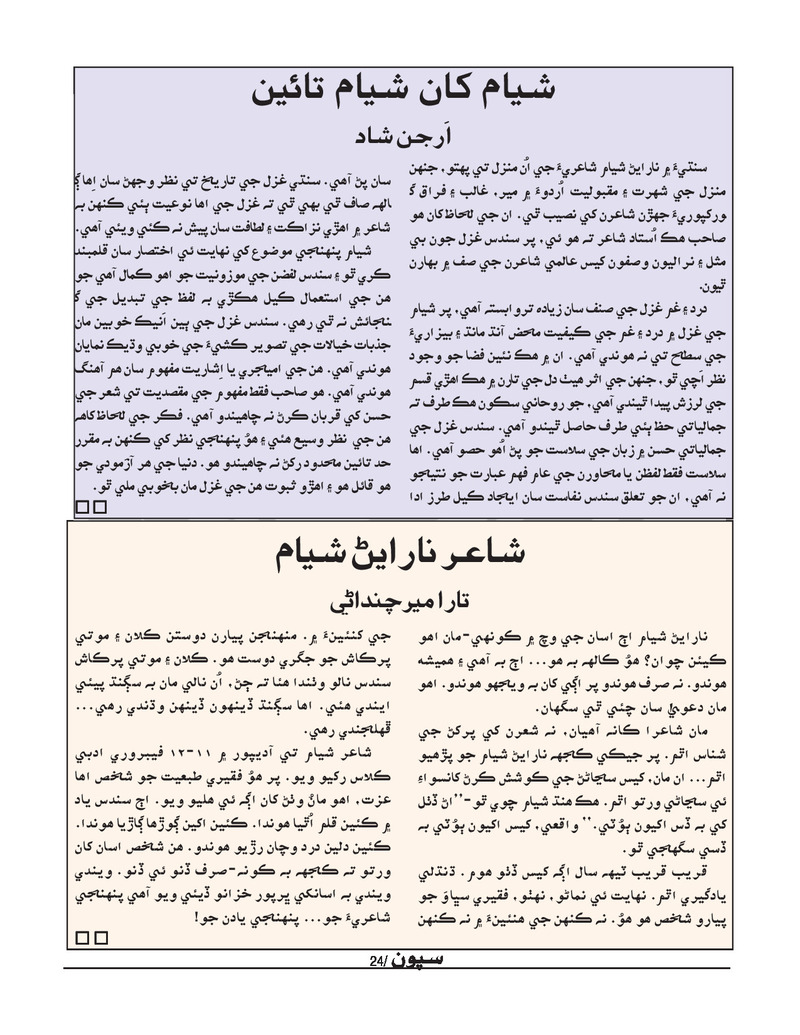 شيام کان شيام تائين
اَرجن شاد
سنڌيءَ ۾ نارايڻ شيام شاعريءَ جي اُن منزل تي پهتو، جنهن
منزل جي شهرت ۽ مقبوليت اُردوءَ ۾ مير، غالب ۽ فراق گ
ورکپوريءَ جهڙن شاعرن کي نصيب ٿي. ان جي لحاظ کان هو
صاحب هڪ اُستاد شاعر ته هو ئي، پر سندس غزل جون بي
مثل ۽ نراليون وصفون کيس عالمي شاعرن جي صف ۾ بهارن
ٿيون.
درد ۽ غم غزل جي صنف سان زياده تر وابسته آهي، پر شيام
جي غزل ۾ درد ۽ غم جي ڪيفيت محض آنڌ مانڌ ۽ بيزاريءَ
جي سطح تي نه هوندي آهي. ان ۾ هڪ نئين فضا جو وجود
نظر اَچي ٿو، جنهن جي اثر هيٺ دل جي تارن ۾ هڪ اهڙي قسم
جي لرزش پيدا ٿيندي آهي، جو روحاني سڪون هڪ طرف ته
جمالياتي حظ ٻئي طرف حاصل ٿيندو آهي. سندس غزل جي
جمالياتي حسن ۾ زبان جي سلاست جو پڻ اُهو حصو آهي. اها
سلاست فقط لفظن يا محاورن جي عام فهم عبارت جو نتيجو
نه آهي، ان جو تعلق سندس نفاست سان ايجاد ڪيل طرز ادا
سان پڻ آهي. سنڌي غزل جي تاريخ تي نظر وجهڻ سان اِها ڳ
الهه صاف ٿي بهي ٿي ته غزل جي اها نوعيت ٻئي ڪنهن به
شاعر ۾ اهڙي نزاڪت ۽ لطافت سان پيش نه ڪئي ويئي آهي.
شيام پنهنجي موضوع کي نهايت ئي اختصار سان قلمبند
ڪري ٿو ۽ سندس لفضن جي موزونيت جو اهو ڪمال آهي جو
هن جي استعمال ڪيل هڪڙي به لفظ جي تبديل جي گ
نجائش نه ٿي رهي. سندس غزل جي ٻين اَنيڪ خوبين مان
جذبات خيالات جي تصوير ڪشيءَ جي خوبي وڌيڪ نمايان
هوندي آهي. هن جي اميجري يا اِشاريت مفهوم سان هم آهنگ
هوندي آهي. هو صاحب فقط مفهوم جي مقصديت تي شعر جي
حسن کي قربان ڪرڻ نه چاهيندو آهي. فڪر جي لحاظ کاهه
هن جي نظر وسيع هئي ۽ هوُ پنهنجي نظر کي ڪنهن به مقرر
حد تائين محدود رکڻ نه چاهيندو هو. دنيا جي هر آزمودي جو
هو قائل هو ۽ اهڙو ثبوت هن جي غزل مان بخوبي ملي ٿو.
شاعر نارايڻ شيام
تارا ميرچنداڻي
نارايڻ شيام اڄ اسان جي وچ ۾ ڪونهي-مان اهو
ڪيئن چوان؟ هوُ ڪالهه به هو... اڄ به آهي ۽ هميشه
هوندو. نه صرف هوندو پر اڳي کان به ويجهو هوندو. اهو
مان دعويٰ سان چئي ٿي سگهان.
مان شاعرا ڪانه آهيان، نه شعرن کي پرکڻ جي
شناس اٿم. پر جيڪي ڪجهه نارايڻ شيام جو پڙهيو
اٿم... ان مان، کيس سڃاڻڻ جي ڪوشش ڪرڻ کانسواءِ
ئي سڃاڻي ورتو اٿم. هڪ هنڌ شيام چوي ٿو-”اڻ ڏٺل
کي به ڏس اکيون ٻوُٽي.“ واقعي، کيس اکيون ٻوُٽي به
ڏسي سگهجي ٿو.
قريب قريب ٽيهه سال اڳه کيس ڏٺو هوم. ڌنڌلي
يادگيري اٿم. نهايت ئي نماڻو، نهٺو، فقيري سڀاوَ جو
پيارو شخص هو هوُ. نه ڪنهن جي هنئينءَ ۾ نه ڪنهن
جي کنئينءَ ۾. منهنجن پيارن دوستن ڪلان ۽ موتي
پرڪاش جو جگري دوست هو. ڪلان ۽ موتي پرڪاش
سندس نالو وٺندا هئا ته ڄڻ، اُن نالي مان به سڳنڌ پيئي
ايندي هئي. اها سڳنڌ ڏينهون ڏينهن وڌندي رهي...
ڦهلجندي رهي.
شاعر شيام تي آديپور ۾ ١١-١٢ فيبروري ادبي
ڪلاس رکيو ويو. پر هوُ فقيري طبعيت جو شخص اها
عزت، اهو مانُ وٺڻ کان اڳه ئي هليو ويو. اڄ سندس ياد
۾ ڪئين قلم اُٿيا هوندا. ڪئين اکين ڳوڙها ڳاڙيا هوندا.
ڪئين دلين درد وچان رڙيو هوندو. هن شخص اسان کان
ورتو ته ڪجهه به ڪونه-صرف ڏنو ئي ڏنو. ويندي
ويندي به اسانکي ڀرپور خزانو ڏيئي ويو آهي پنهنجي
شاعريءَ جو... پنهنجي يادن جو!
سپون /24